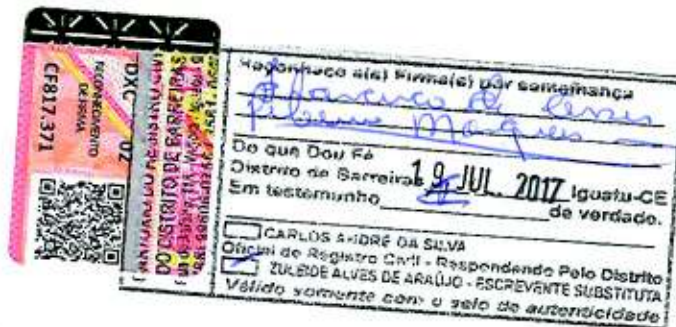 DXC 02
RECONHECIMENTO
DE FIRMA
CF817.371
DO DISTRITO DE BARREIRAS
Reconheço a(s) Firma(s) por semelhança
Francisco de Assis
Marques
Do que Dou Fé
Distrito de Barreiras 19 JUL. 2017 Iguatu-CE
Em testemunho de verdade.
CARLOS ANDRÉ DA SILVA
Oficial de Registro Civil - Respondendo Pelo Distrito
ZULEIDE ALVES DE ARAÚJO - ESCREVENTE SUBSTITUTA
Válido somente com o selo de autenticidade